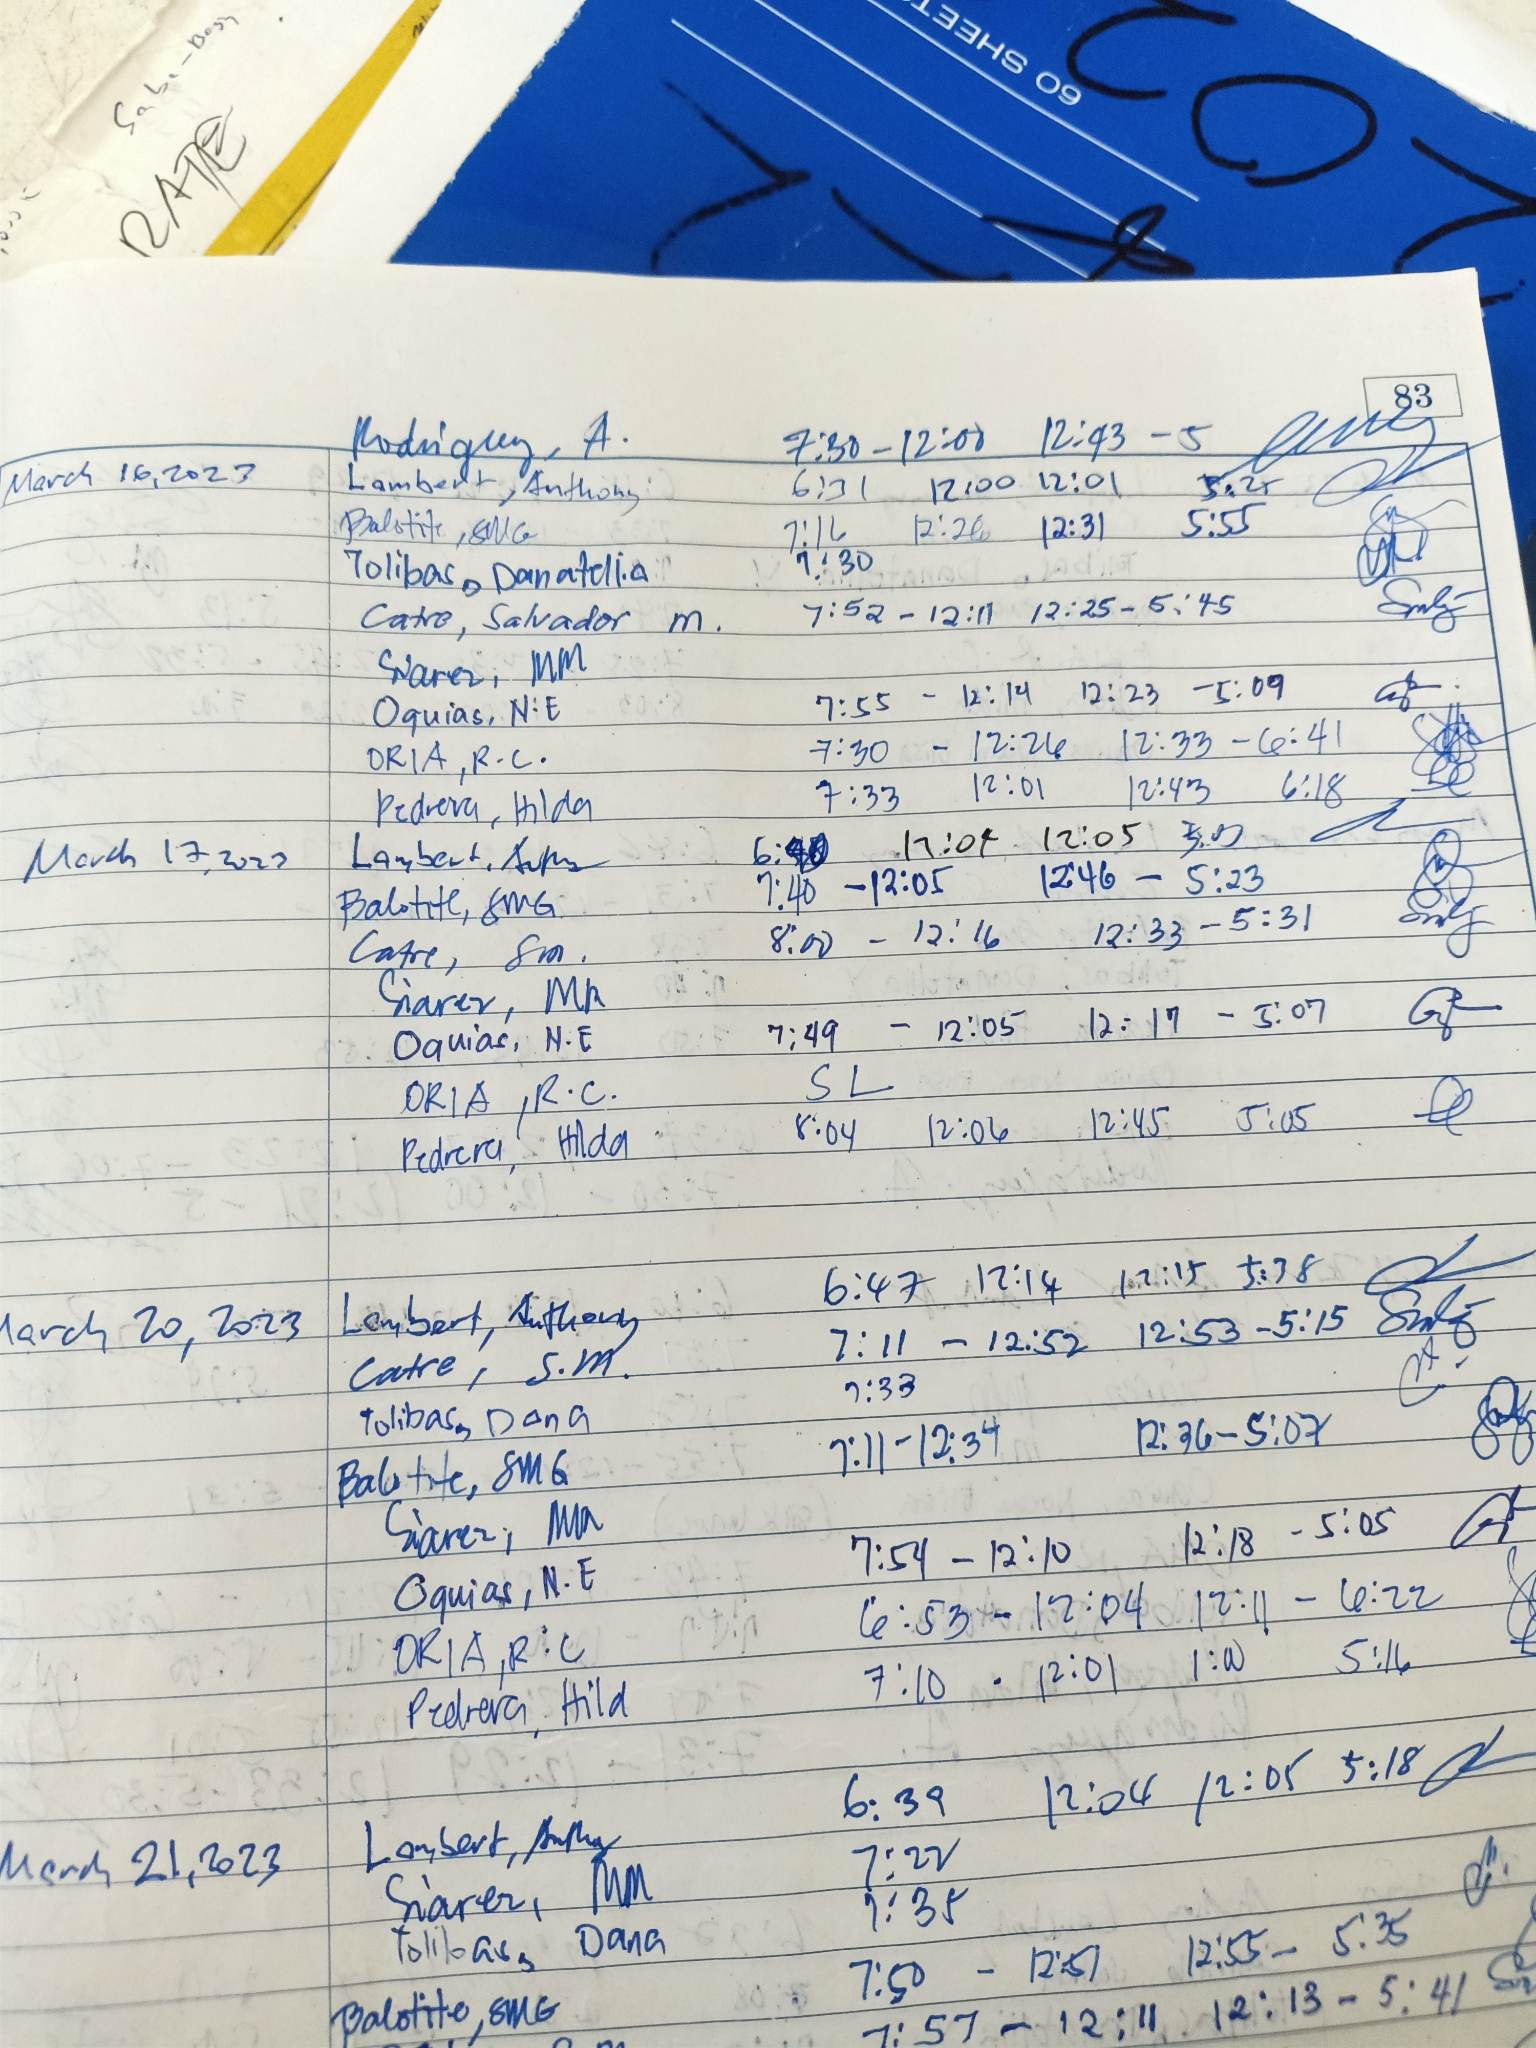 Saba-Basy
RATE
60 SHEETS
83
Rodriguez, A. 7:30 - 12:00 12:43 - 5
March 16, 2023 Lambert, Anthony 6:31 12:00 12:01 5:25
Balotite, SMG 7:16 12:26 12:31 5:55
Tolibas, Danatella 7:30
Catre, Salvador M. 7:52 - 12:11 12:25 - 5:45
Siarez, MM
Oquias, N.E 7:55 - 12:14 12:23 - 5:09
ORIA, R.C. 7:30 - 12:26 12:33 - 6:41
Pedrera, Hilda 7:33 12:01 12:43 6:18
March 17, 2023 Lambert, 12:04 12:05
Balotite, SMG 7:40 - 12:05 12:46 - 5:23
Catre, Sm. 8:00 - 12:16 12:33 - 5:31
Siarez, MM
Oquias, N.E 7:49 - 12:05 12:17 - 5:07
ORIA, R.C. SL
Pedrera, Hilda 8:04 12:06 12:45 5:05
March 20, 2023 Lambert, Anthony 6:47 12:14 12:15 5:38
Catre, S.M. 7:11 - 12:52 12:53 - 5:15
Tolibas, Dana 7:33
Balotite, SMG 7:11 - 12:34 12:36 - 5:07
Siarez, MM
Oquias, N.E 7:54 - 12:10 12:18 - 5:05
ORIA, R.C 6:53 - 12:04 12:11 - 6:22
Pedrera, Hild 7:10 - 12:01 1:00 5:16
March 21, 2023 Lambert, 6:39 12:04 12:05 5:18
Siarez, MM 7:22
Tolibas, Dana 7:35
Balotite, SMG 7:50 - 12:51 12:55 - 5:35
7:57 - 12:11 12:13 - 5:41